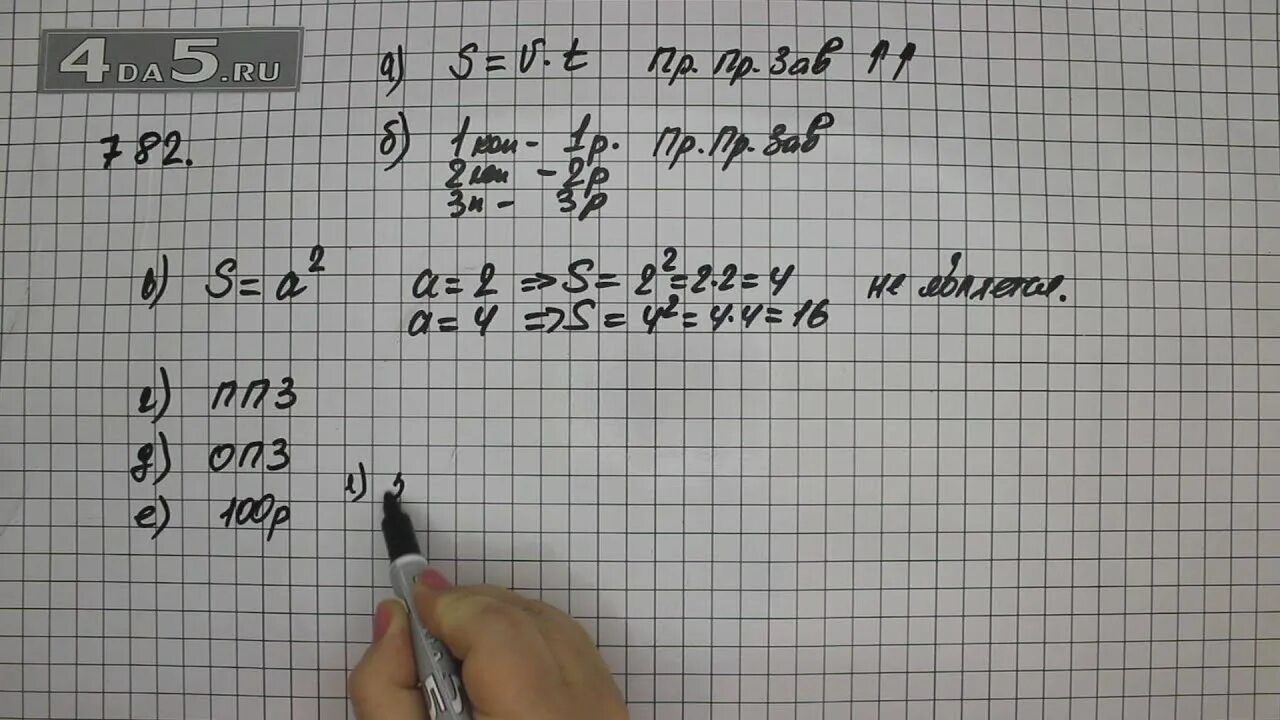 4DA5.RU
782.
а) S = v · t Пр. Пр. Зав ↑↑
б) 1 коп - 1 р. Пр. Пр. Зав
2 коп - 2 р
3 к - 3 р
в) S = a² a = 2 => S = 2² = 2·2 = 4 не является.
a = 4 => S = 4² = 4·4 = 16
г) ППЗ
д) ОПЗ
е) 100р 1)